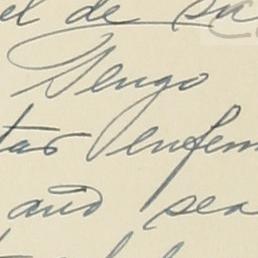 el de su
Vengo
tas enfer
and sea